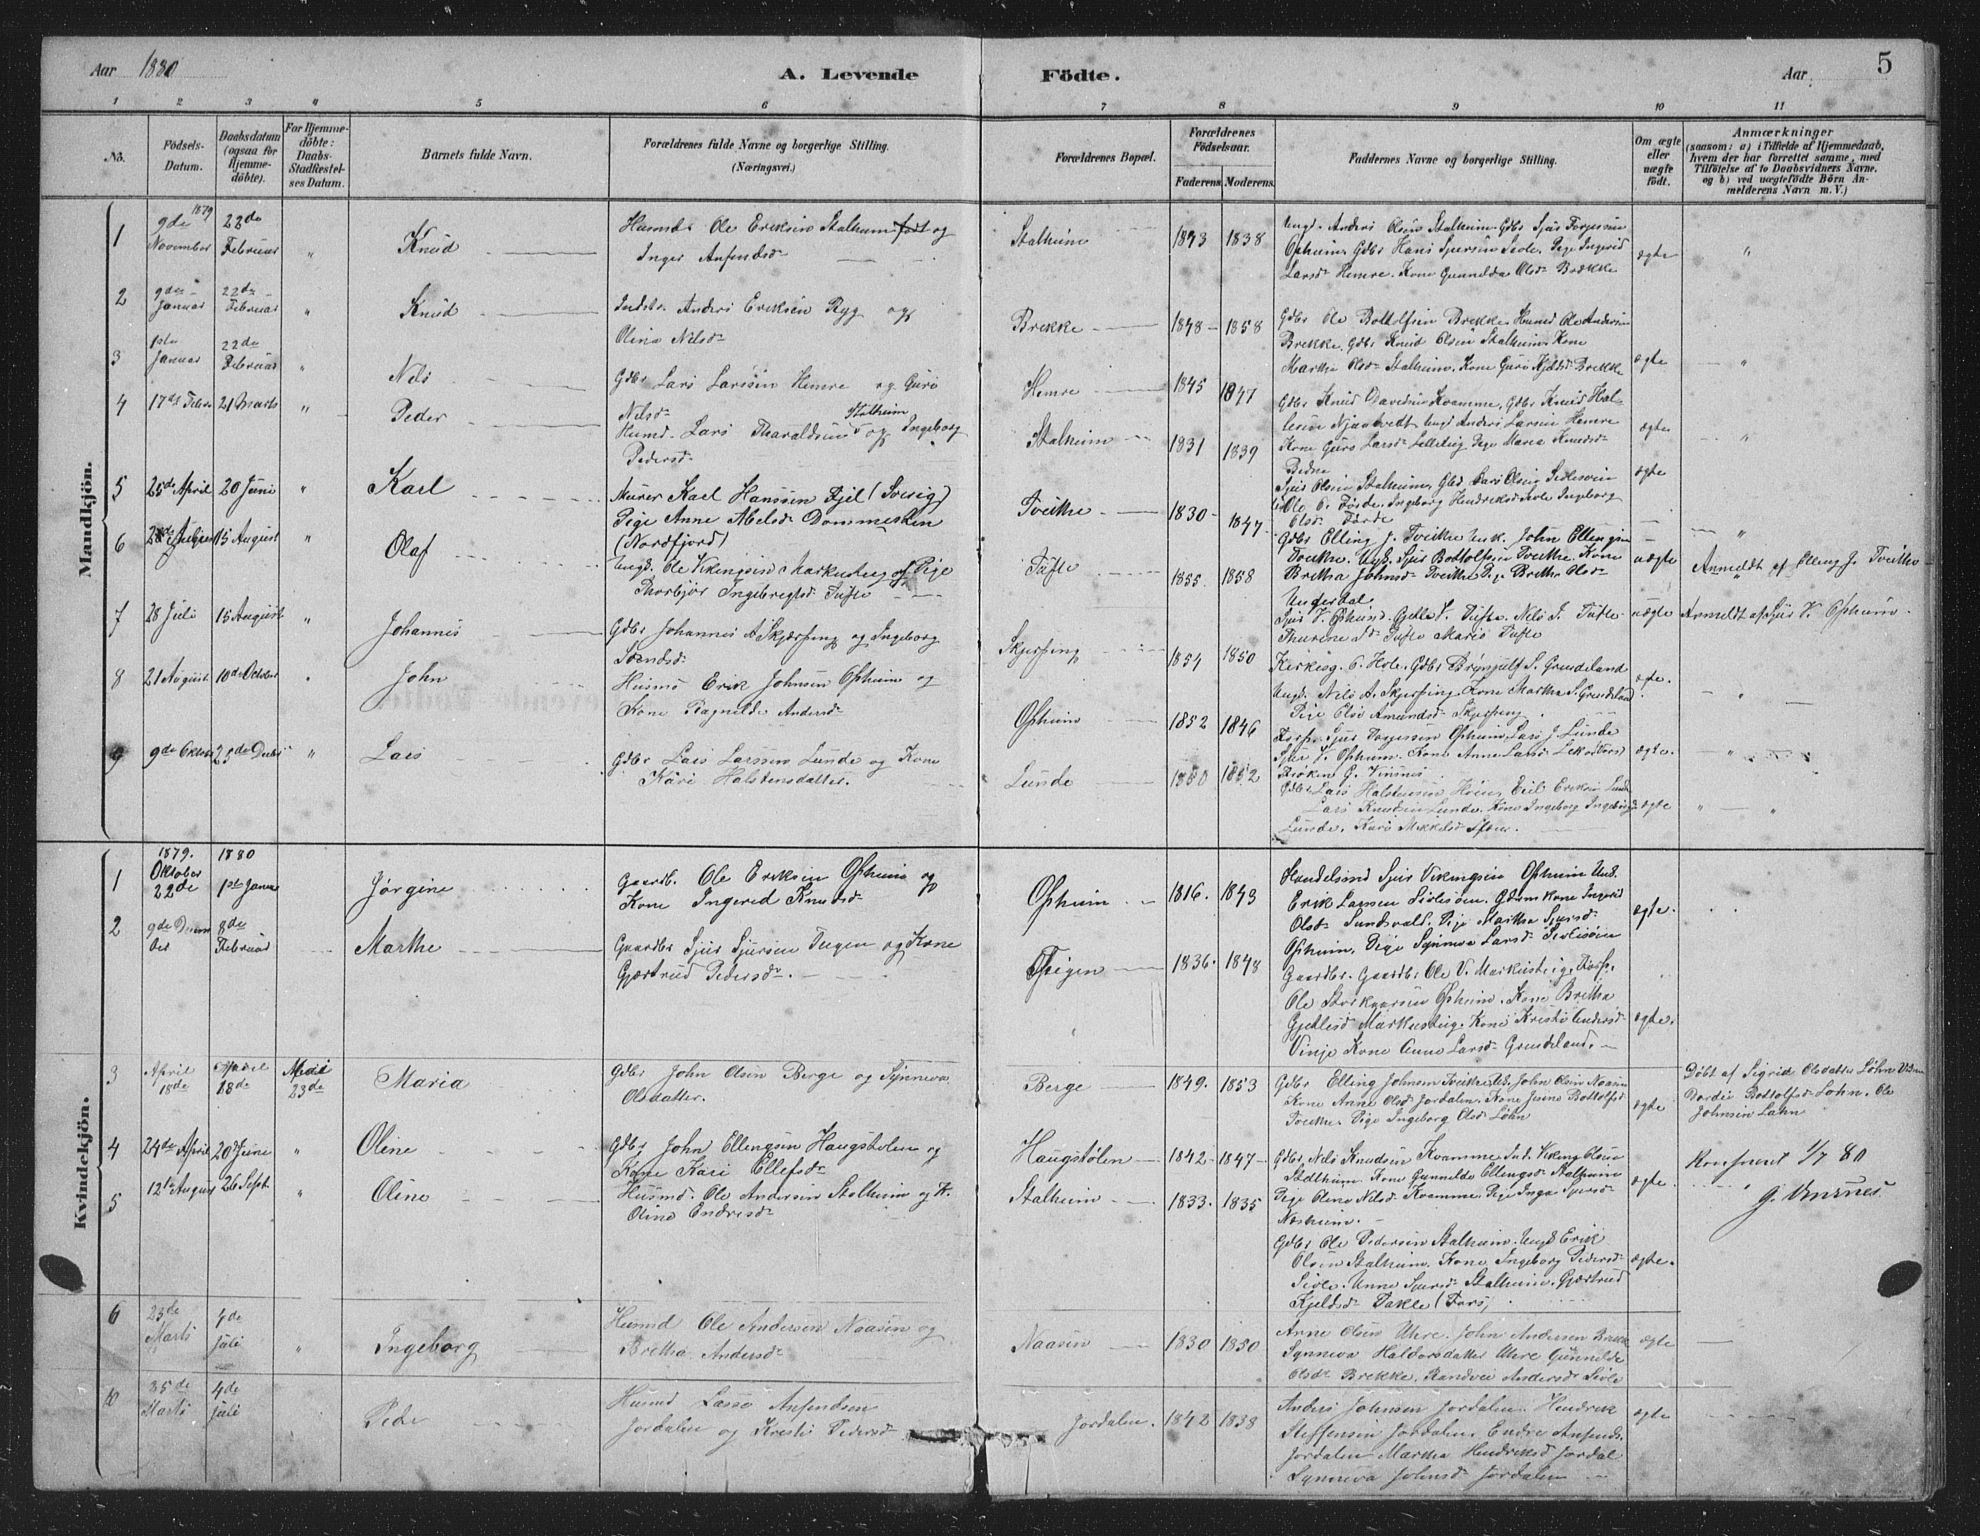 Aar 1880 A. Levende Födte. Aar 5
1 2 3 4 5 6 7 8 9 10 11
No.
Födsels-Datum.
Daabsdatum (ogsaa for Hjemme-döbte).
For Hjemme-döbte: Daabs-Stadfæstel-ses Datum.
Barnets fulde Navn.
Forældrenes fulde Navne og borgerlige Stilling.
(Næringsvei.)
Forældrenes Bopæl.
Forældrenes Födselsaar.
Faderens. Moderens.
Faddernes Navne og borgerlige Stilling.
Om ægte eller uægte födt.
Anmærkninger
(saasom: a) i Tilfælde af Hjemmedaab,
hvem der har forrettet samme, med
Tilföielse af to Daabsvidners Navne,
og b) ved uægtefödte Börn An-
melderens Navn m. V.)
Mandkjön.
1 9de November 1879 22de Februar " Knud Husmd. Ole Eriksen Stalheim og
Inger Anfindsd. Stalheim 1843 1838 Ungk. Anders Olsen Stalheim. Gdbr Sjur Torgersen
Opheim, Gdbr Hans Sjursen Sivle, Pige Ingerid
Larsd. Hemre. Kone Gunnilda Olsd. Brække ægte "
2 9de Januar 22de Februar " Knud Inderst. Anders Eriksen Ryg og
Olina Nilsd. Brekke 1848 1858 Gdbr Ole Bottolfsen Brekke. Husmd Ole Andersen
Brekke, Gdbr Knud Olsen Stalheim, Kone
Martha Olsd. Stalheim, Kone Guro Brekke ægte "
3 1ste Januar 22de Februar " Nils Gdbr Lars Larssen Hemre og Guro
Nilsd. Hemre 1845 1847 Gdbr Knud Kvamme, Gdbr Knud Hal-
Anders Larsen Hemre
Kone Guro Larsd. Pige Maria Knudsd. ægte "
4 17de Febr 21 Marts " Peder Husmd. Lars Tharaldsen Stalheim og Ingeborg
Pedersd. Stalheim 1831 1839 Sjur Olsen Stalheim, Gbr Lars Olsen
Ole O. Førde. Ingeborg Hendriksd Sivle Ingeborg
Olsd. Førde ægte
5 25de April 20 Juni " Karl Murer Karl Hanssen Fjel (Sverig)
Pige Anne Abelsd. Dommesken
(Nordfjord) Tveithe 1830 1847 Gdbr Elling J. Tveithe Ungk. John Ellingsen
Tveithe. Ungk. Sjur Bottolfsen Tveithe Kone
Britha Johnsd. Tveithe Pige Britha Olsd.
Underdal uægte Anmeldt af Elling J. Tveithe
6 15 August " Olaf Ungk. Ole Vikingsen Markusteig og Pige
Thorbjør Ingebrigtsd Tufte Tufte 1855 1858 Sjur V. Opheim. Gjelle V. Tufte. Nils I. Tufte
Tufte Maris Tufte uægte Anmeldt af Sjur V. Opheim.
7 28 Juli 15 August " Johannes Gdbr Johannes A Skjerping og Ingeborg
Svendsd. Skjerping 1854 1850 Kirkesg. O. Hole. Gdbr Brynjulf S. Grendeland
Ungk. Nils A. Skjerping Kone Martha S. Grendeland
Pige Olso Amundsd. Skjerping. ægte.
8 21 August 10de October " John Husmd Erik Johnsen Opheim og
Kone Ragnilde Andersd. Opheim 1852 1846 Korp. Sjur Torgersen Opheim Lars J Lunde
Sjur V. Opheim. Kone Anne Larsd. ægte. "
9 9de Oktbr 25de Decbr " Lars Gdbr Lars Larssen Lunde og Kone
Kari Halstensdatter. Lunde 1880 1852 Gdbr Lars Halstensen Eril Eriksen Lunde
Lars Knudsen Lunde. Kone Ingeborg
Lunde. Kari Mikkelsd. ægte " "
Kvindekjön.
1 1879. Oktober 22de 1880 1ste Januar Jørgine Gaardb. Ole Eriksen Opheim og
Kone Ingerid Knudsd. Opheim 1816. 1843 Handelsmd Sjur Vikingsen Opheim Ungk.
Erik Larsen Sivlesøen. Gdmskone Ingerid
Olsd. Sundsvald. Pige Martha Sjursd.
Opheim. Pige Synneva Larsd Sivlesøen ægte.
2 9de Decem ber 8de Februar Marthe Gaardbr Sjur Sjursen Tvigen og Kone
Gjærtrud Pedersd. Tvigen 1836. 1848 Gaardbr. Gaardbr. Ole V. Markusteig, Korp.
Ole Styrkaarsen Opheim. Kone Britha
Gjellesd Markusteig. Kone Kristi Andersd.
Vinje Kone Anna Larsd. Grendeland. ægte.
3 April 18de April 18de April 23de Maria Gdbr John Olsen Berge og Synneva
Olsdatter. Berge 1849. 1853 Gdbr Elling Johnsen Tveithe Ungk. John Olsen Naasen
Kone Anne Olsd Jordalen. Kone Bottolfsd
Tveithe. Pige Ingeborg Olsd Løhn ægte Døbt af Sigrid Olsdatter Løhn Vidner
Bottolfsd Løhn. Ole
Johnsen Løhn
4 24de April 20de June " Oline Gdbr John Ellingsen Haugstølen og
Kone Kari Ellefsd. Haugstølen 1842 1847 Gdbr Nils Knudsen Kvamme Ungk. Viking Olsen
Stalheim. Kone Gunnilde Ellingsd. Stalheim
Pige Olena Nilsd. Kvamme Pige Inga Sjursd. ægte. Konfereret 1/7 80
5 12te August 26 Sept. " Oline Husmd. Ole Andersen Stalheim og K.
Olina Endresd. Stalheim 1833. 1835 Gdbr Ole Pedersen Stalheim. Ungk Erik
Olsen Stalheim. Kone Ingeborg Pedersd
Sivle. Anna Sjursd. Stalheim, Gjertrud
Kjeldsd. Takle (Fors) ægte. G. Vinsnes.
6 23de Marts 4de Juli " Ingeborg Husmd Ole Andersen Naasen og
Britha Andersd. Naasen 1830 1830 Anne Olsen Uhre. John Andersen Brekke
Synneva Haldorsdatter Uhre Gunnilde
Olsd. Brekke. Randvei Andersd Sivle ægte
25de Marts 4de Juli Husmd Lasse Anfindsen
Jordalen og Kristi Pedersd Jordalen. 1842 1838 Anders Johnsen Jordalen. Hendrik
Steffensen Jordalen. Endre Anfinds.
Jordalen Martha Hendriksd Jordal
Synneva Johnsd. Jordalen ægte